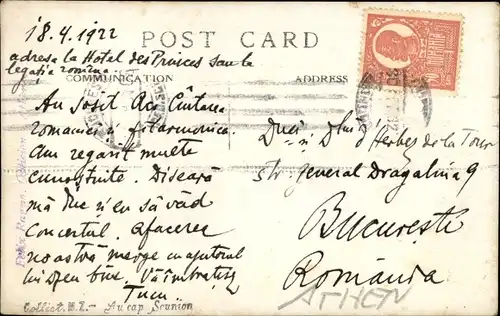 18.4.1922
adresa la Hotel des Princes sau la
legația romina.
POST CARD
COMMUNICATION
ADDRESS
Au sosit aci Cintarea
romaniei și filarmonica.
Am regasit multe
cunostinte. Diseară
mă duc și eu să văd
Concertul. Afacerea
noastră merge cu ajutorul
lui Dzeu bine. Vă îmbrățișez
D'Herbes de la Tour
str. general Dragalina 9
București
România
ATHEN
Collect. N.Z. - Au cap Sounion